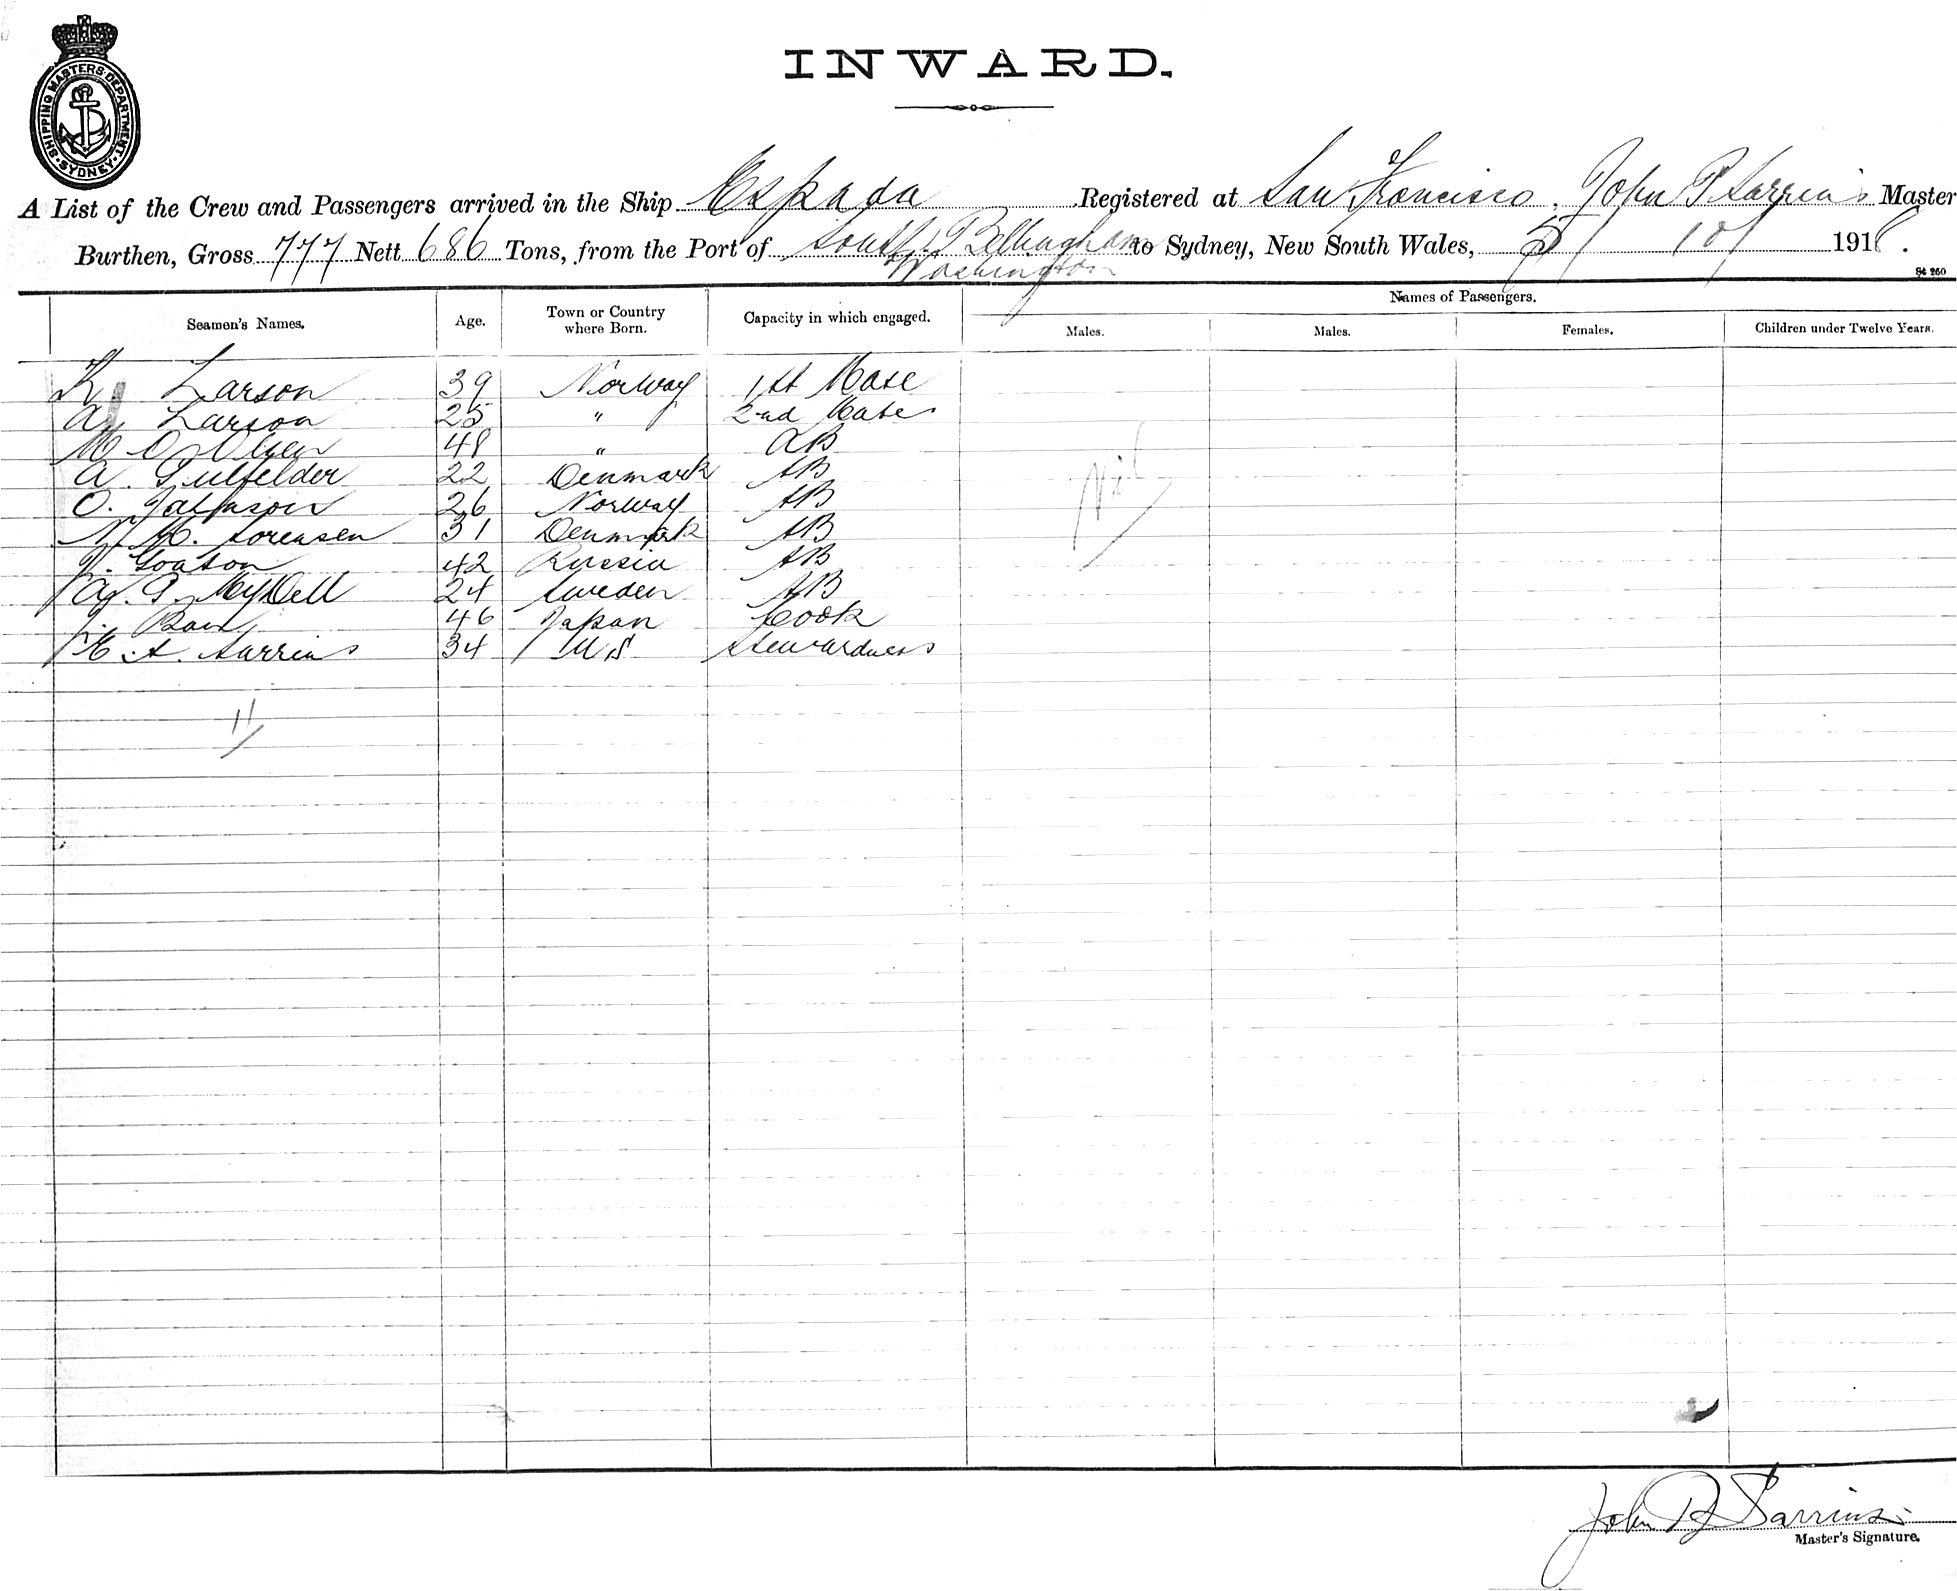 SHIPPING MASTERS DEPARTMENT SYDNEY
INWARD.
A List of the Crew and Passengers arrived in the Ship Espada Registered at San Francisco, John P Sarrins Master
Burthen, Gross 777 Nett 686 Tons, from the Port of South Bellingham Washington to Sydney, New South Wales, 5/ 10/ 1916.
St 260
Names of Passengers.
Seamen's Names. Age. Town or Country where Born. Capacity in which engaged. Males. Males. Females. Children under Twelve Years.
K. Larson 39 Norway 1st Mate
A. Larson 25 " 2nd Mate
M O Olsen 48 " AB
A. 22 Denmark AB
O. 26 Norway AB
N M. Sorensen 31 Denmark AB
42 Russia AB
24 Sweden AB
46 Japan Cook
E. A. Sarrins 34 U S Stewardness
Nil
11
John P Sarrins
Master's Signature.